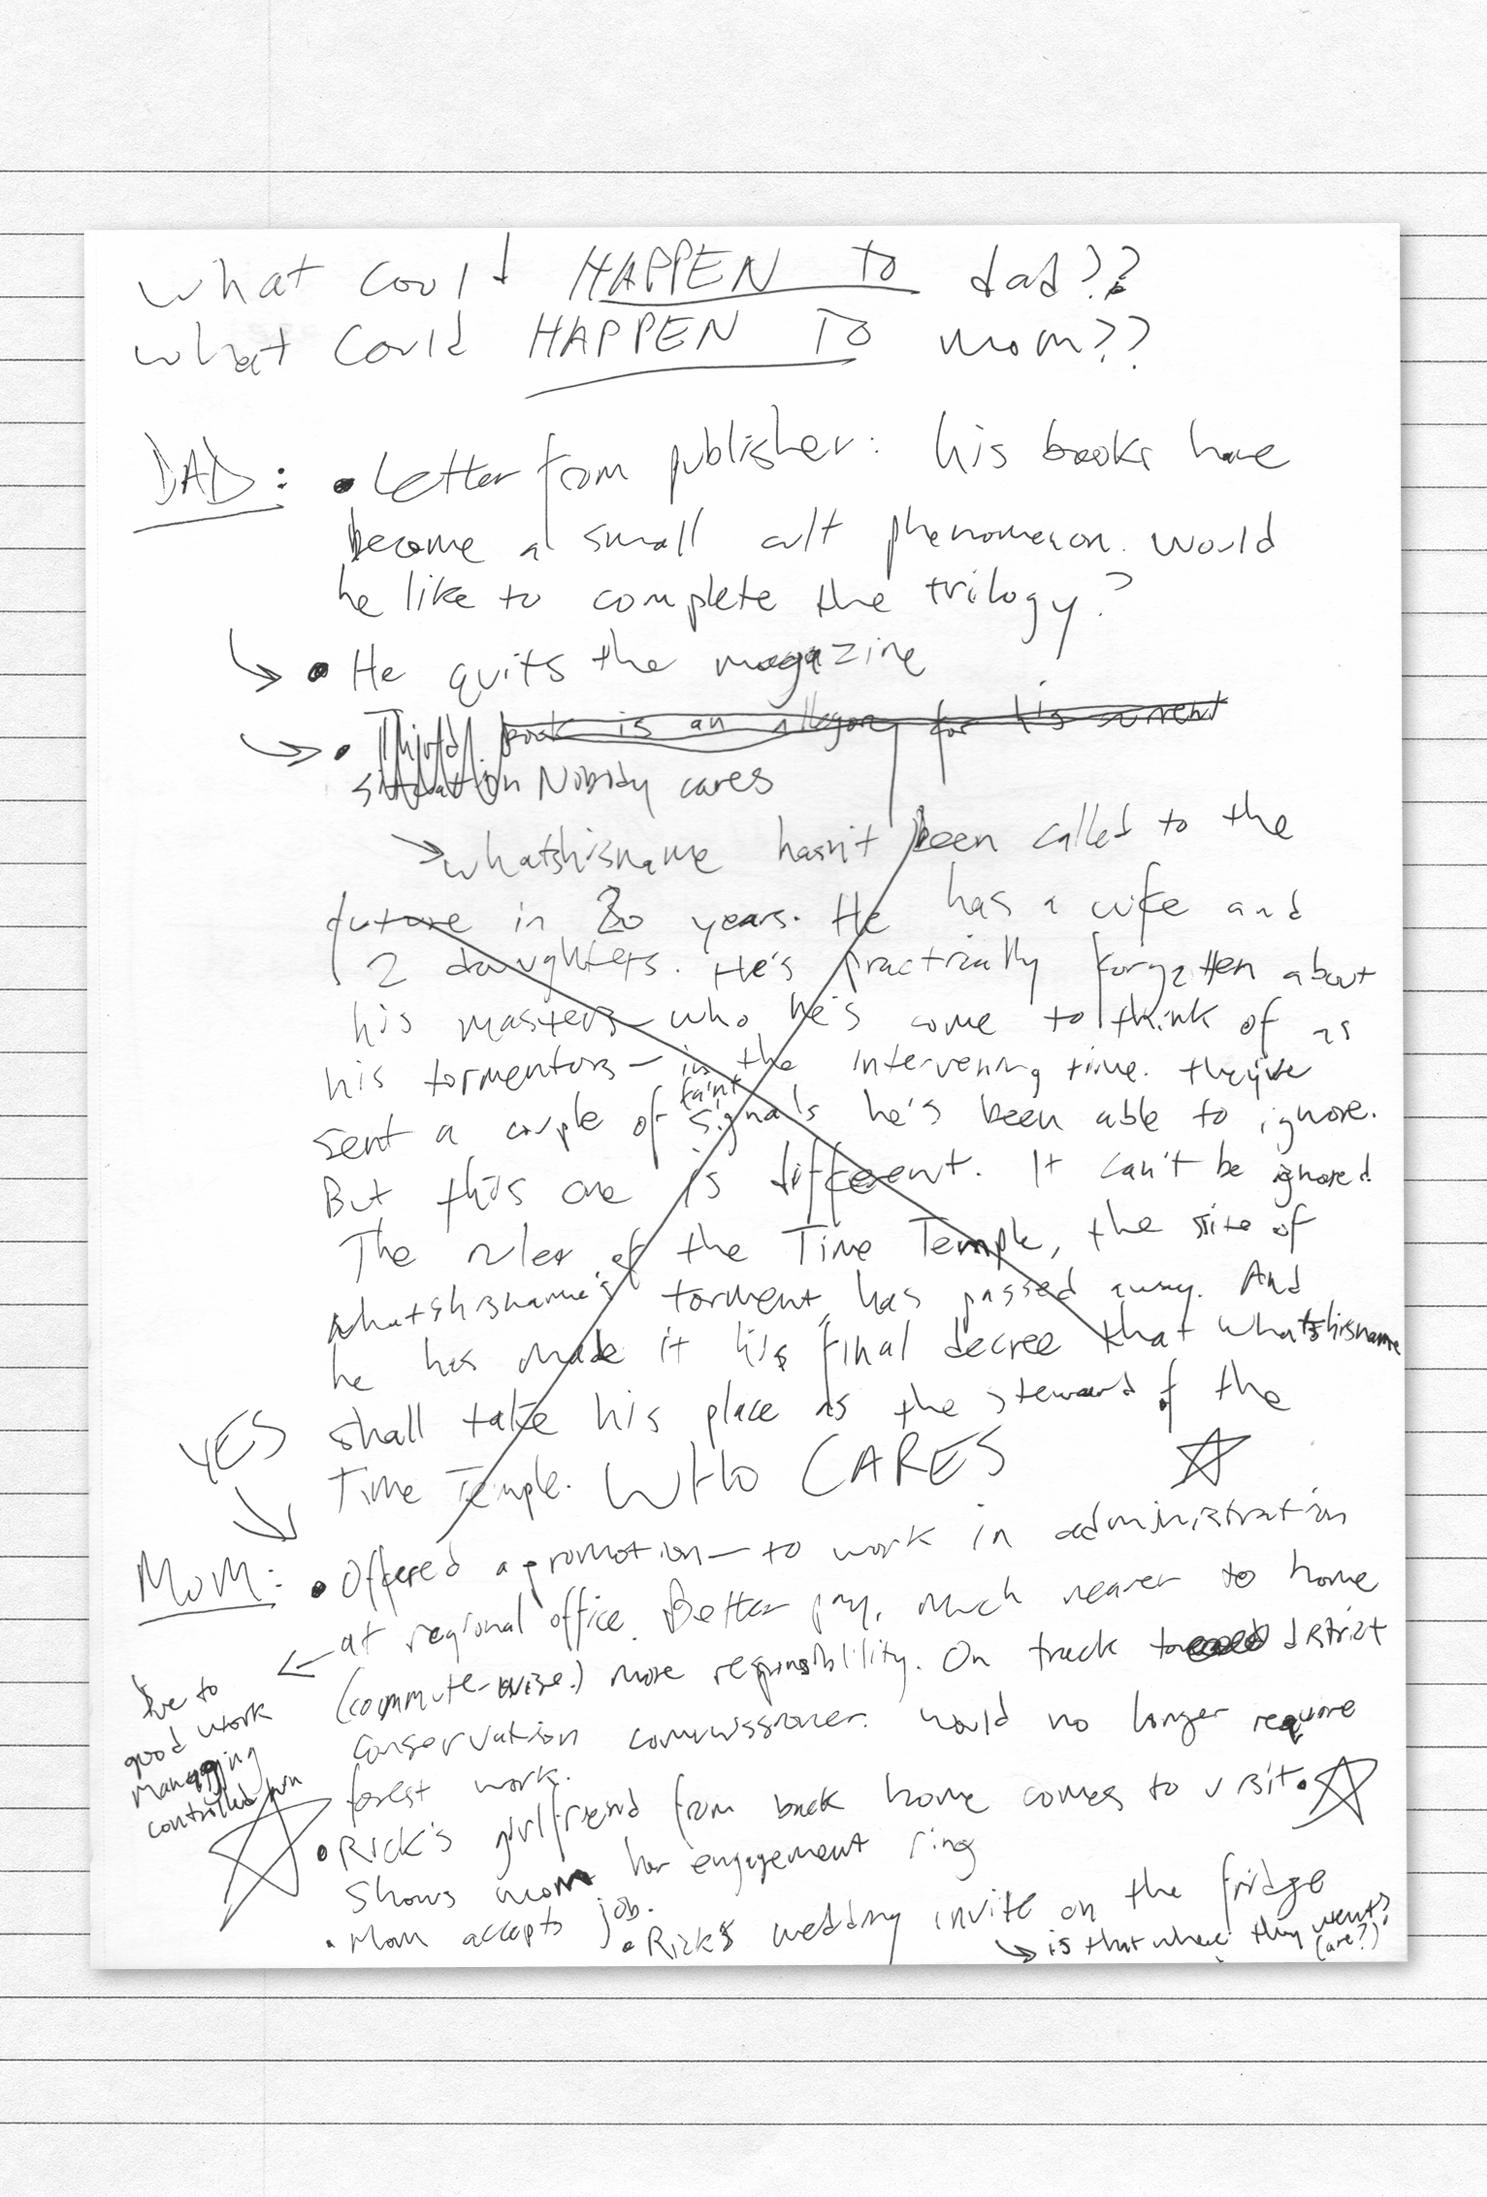 What could HAPPEN TO dad??
What could HAPPEN TO mom??
DAD: • Letter from publisher: his books have
become a small cult phenomenon. Would
he like to complete the trilogy?
→ • He quits the magazine
→ • Third book is an allegory for his current
situation Nobody cares
→ whatshisname hasn't been called to the
future in 20 years. He has a wife and
2 daughters. He's practically forgotten about
his masters - who he's come to think of as
his tormentors - in the intervening time. they've
sent a couple of faint signals he's been able to ignore.
But this one is different. It can't be ignored
The ruler of the Time Temple, the site of
whatshisname's torment, has passed away. And
he has made it his final decree that whatshisname
shall take his place as the steward of the
Time Temple. WHO CARES
YES
MOM: • Offered a promotion - to work in administration
at regional office. Better pay, much nearer to home
(commute-wise.) More responsibility. On track to district
conservation commissioner. Would no longer require
forest work.
← due to
good work
managing
controlled burn
• Rick's girlfriend from back home comes to visit.
Shows mom her engagement ring
• Mom accepts job.
• Rick's wedding invite on the fridge
→ is that where they went?
(are?)